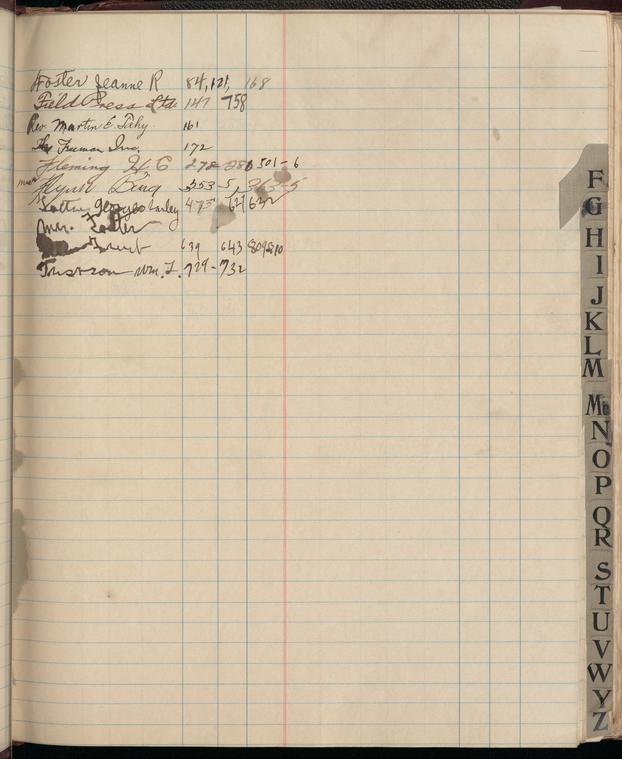 Foster Jeanne R 84, 121, 168
Field Press Ltd. 147 758
Rev. Martin E. Fahy 161
Freeman Inc. 172
Fleming 278 286 301-6
Flynn Bing 353-5, 363-5
Georges 475 621 632
Mrs. Foster
639 643 809 810
Wm. J. 729-732
F
G
H
I
J
K
L
M
Mc
N
O
P
Q
R
S
T
U
V
W
Y
Z